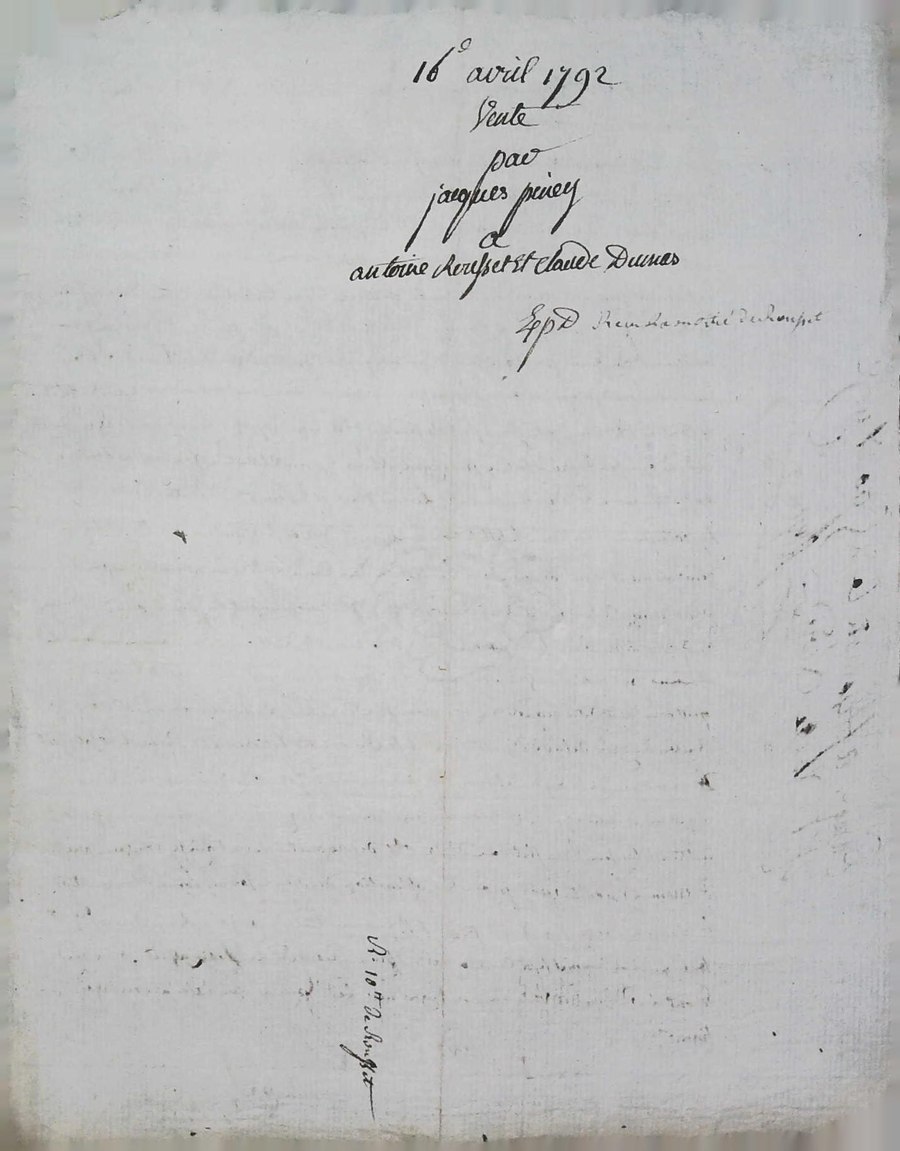 16e avril 1792
Vente
par
jacques piney
a
antoine Rousset Et Claude Dumas
Expd Reçu la moitié de Rousset
R. 10tt de Rousset